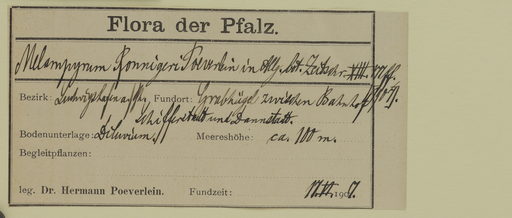 Flora der Pfalz.
Melampyrum Ronnigeri Poeverlein in Allg. bot. Zeitschr. XIII. 177 ff.
Bezirk: Ludwigshafen a/Rh., Fundort: Grabhügel zwischen Bahnhof
Schifferstadt und Dannstadt.
Bodenunterlage: Diluvium. Meereshöhe: ca. 100 m.
Begleitpflanzen:
leg. Dr. Hermann Poeverlein. Fundzeit: 1907.